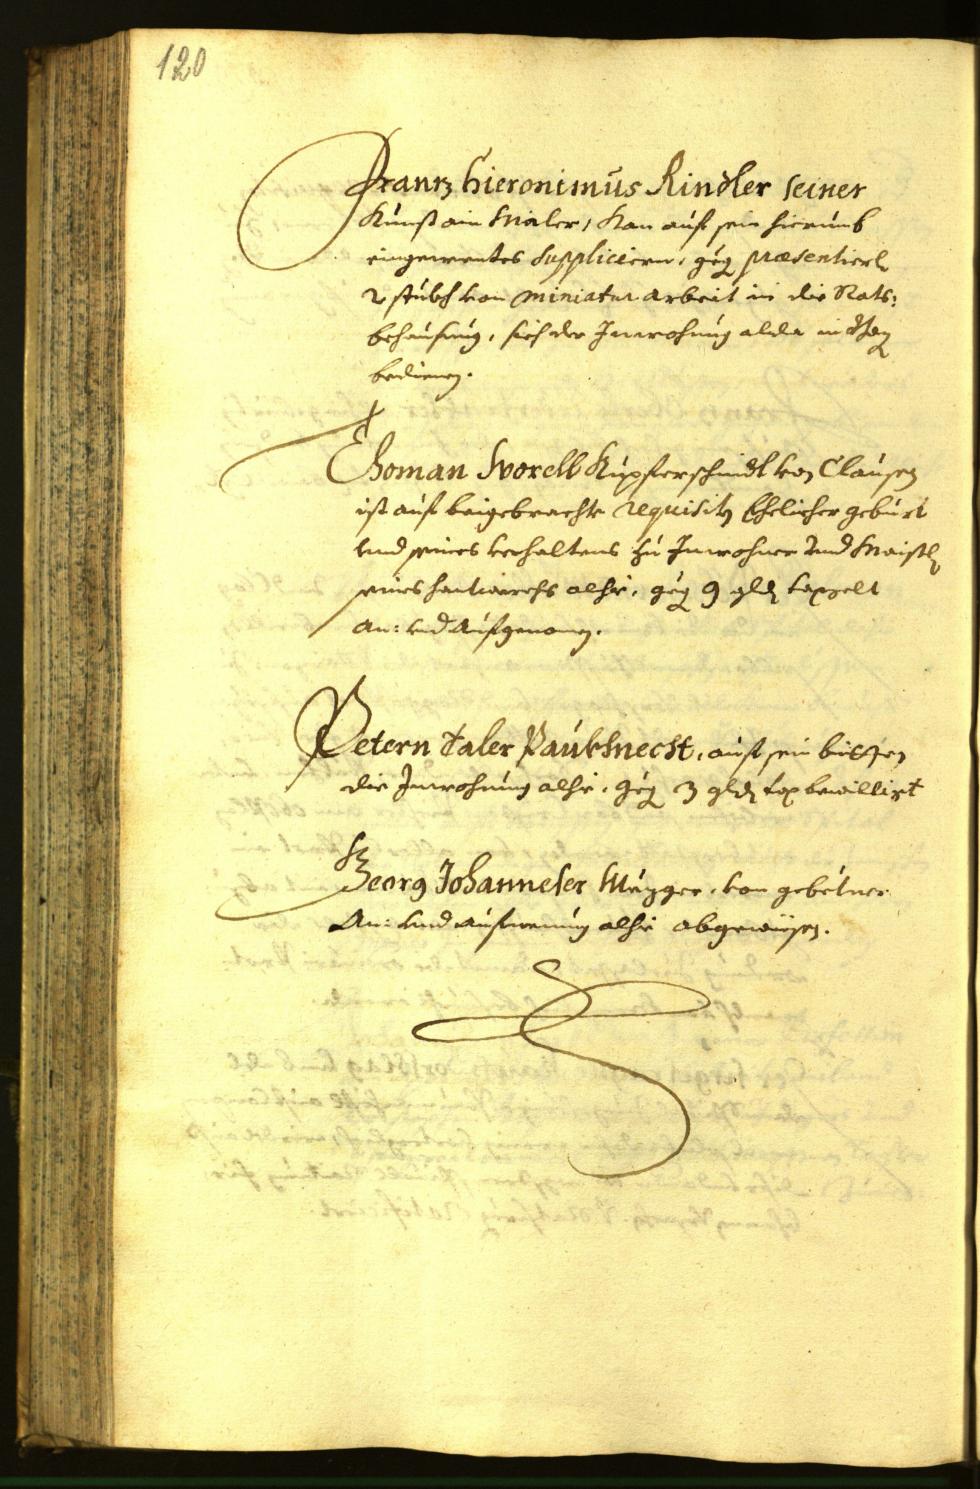 120
Frantz Hieronimus Rindler seiner
Kunst ain Maler, kan auf sein hierumb
eingewentes Suppliciern, geg præsentierL
2 stuckh von miniatur arbeit in die Rats:
behausung, sich der Inwohnung alda in
bedienen.
Thoman Worell Kupferschmidt von Clausen
ist auf beigebrachte requisita Ehelicher geburt
und seines verhaltens zu Inwohner und Maister
seines hantwerchs alhie, geg 9 gld
An: und Aufgenomen.
Petern Taler Paukhnecht, auf sein bitten
die Inwohnung alhie, geg 3 gld tax bewilligt
Georg Johanneser Mezger, von gebetner
An: und aufnemung alhie abgewisen.